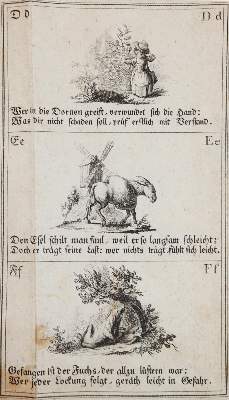 D d D d
Wer in die Dornen greift, verwundet sich die Hand;
Was dir nicht schaden soll, prüf erstlich mit Verstand.
E e E e
Den Esel schilt man faul, weil er so langsam schleicht;
Doch er trägt seine Last: wer nichts trägt fühlt sich leicht.
F f F f
Gefangen ist der Fuchs, der allzu lüstern war;
Wer jeder Lockung folgt, geräth leicht in Gefahr.